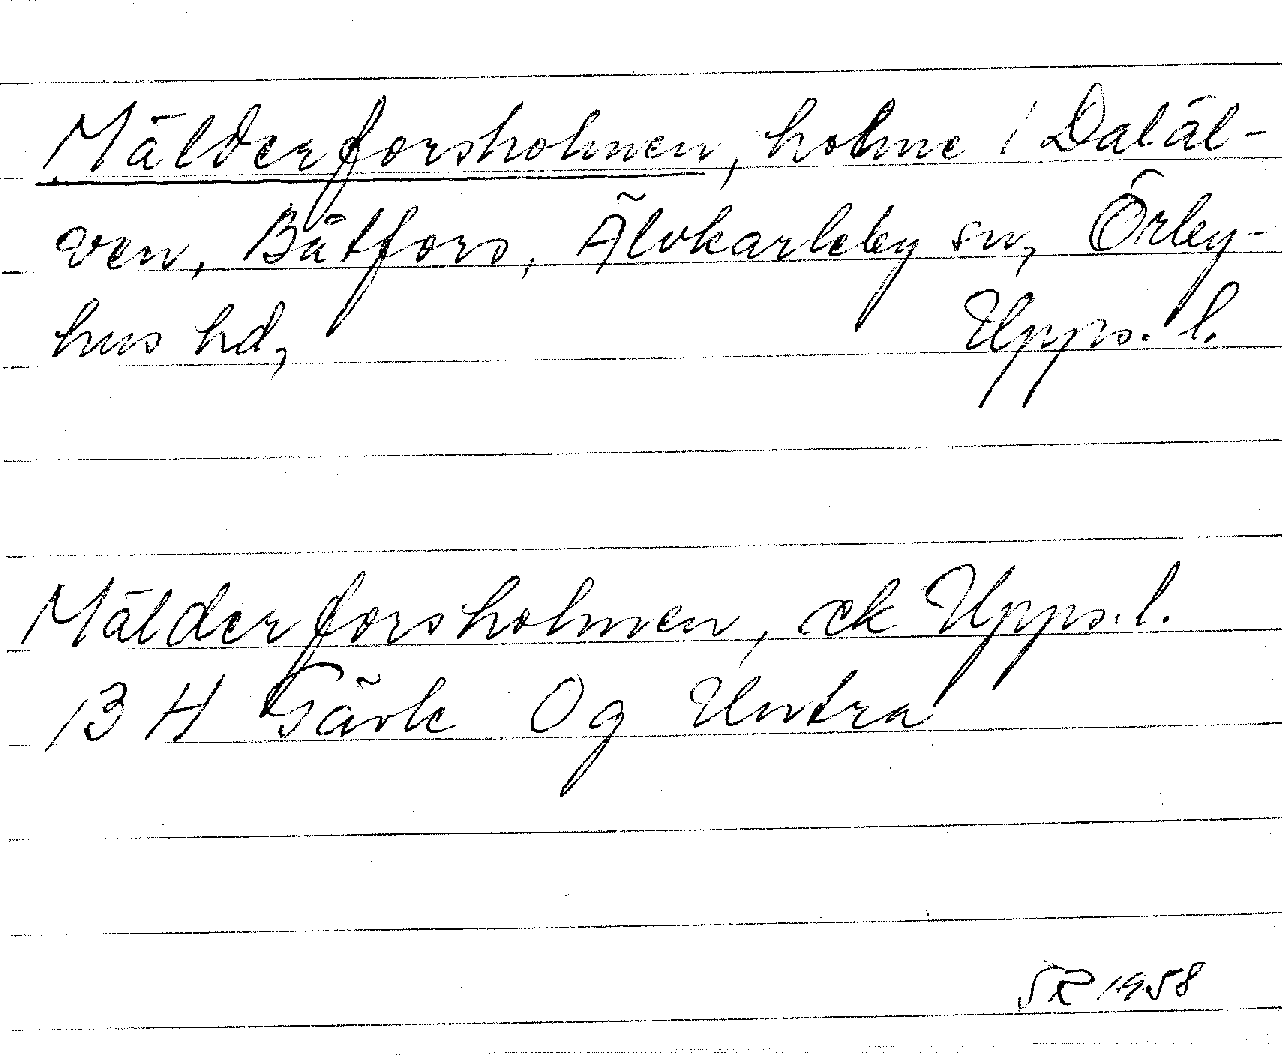 Mälderforsholmen, holme i Daläl-
ven, Båtfors, Älvkarleby sn, Örby-
hus hd, Upps. l.
Mälderforsholmen, ek Upps. l.
13 H Gävle Og Untra
SR 1958